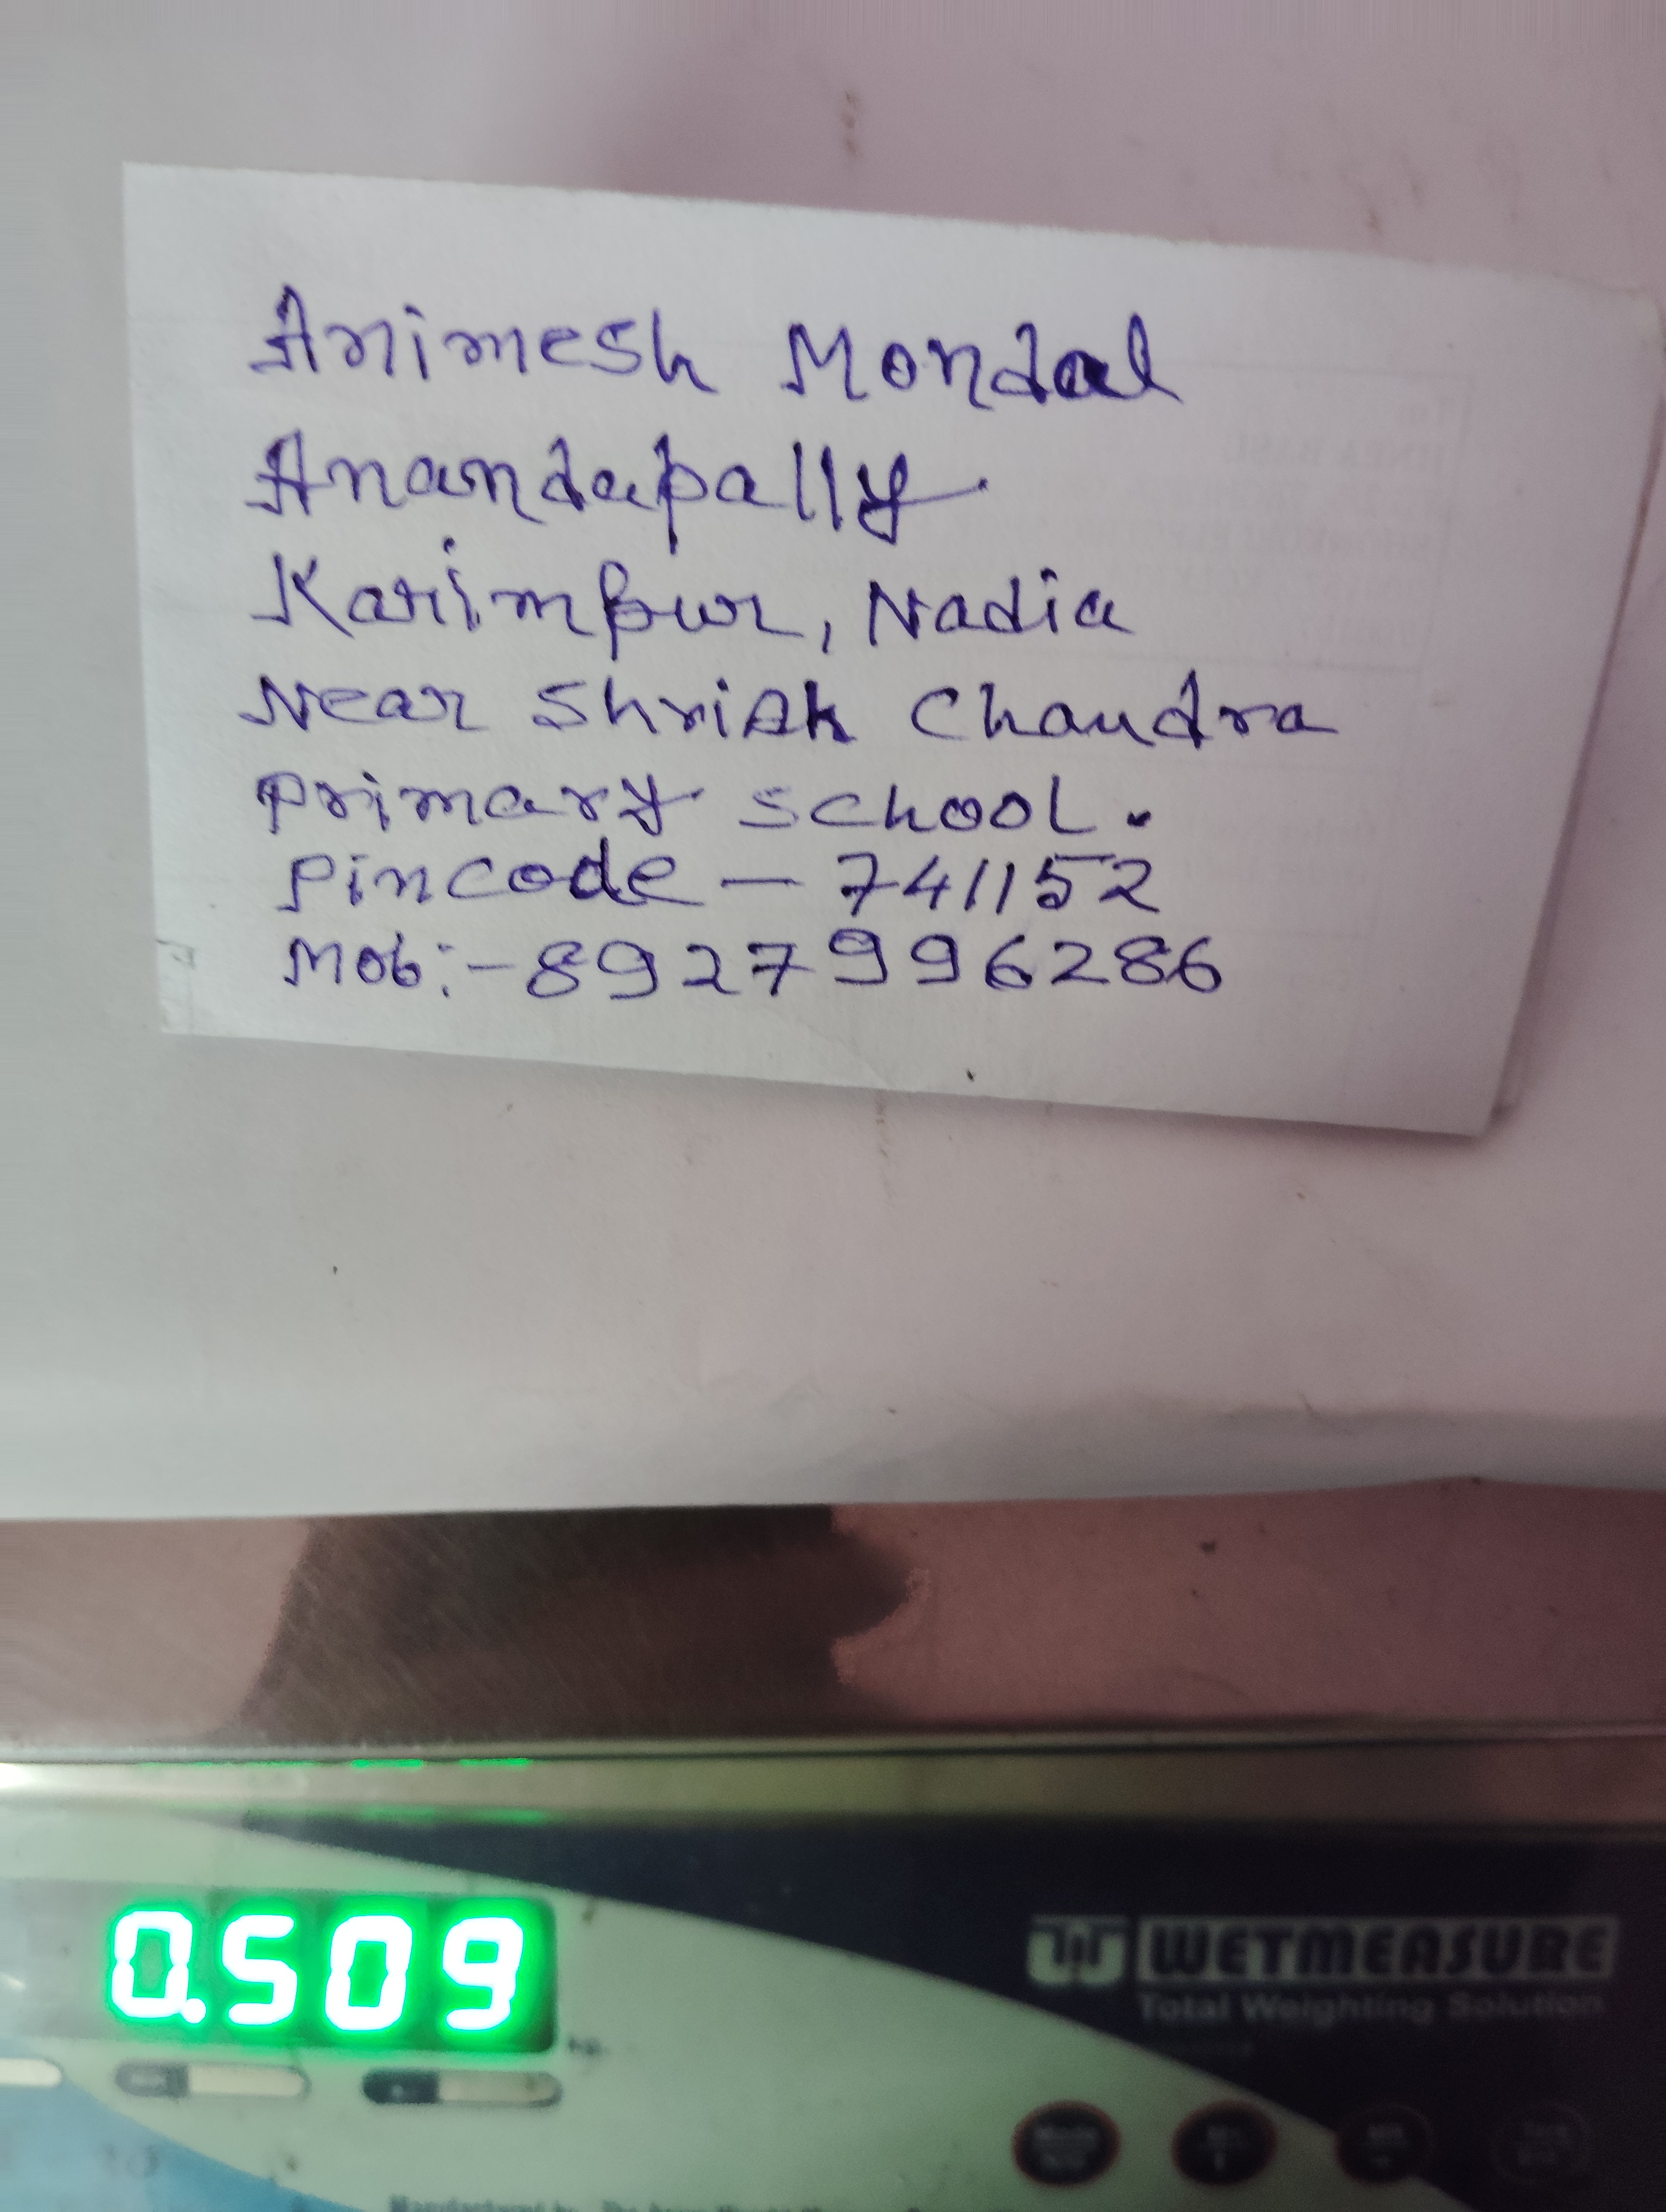 Animesh Mondal
Anandapally
Karimpur, Nadia
Near Shrish Chandra
Primary School.
Pincode - 741152
Mob:- 8927996286
0.509
WETMEASURE
Total Weighting Solution